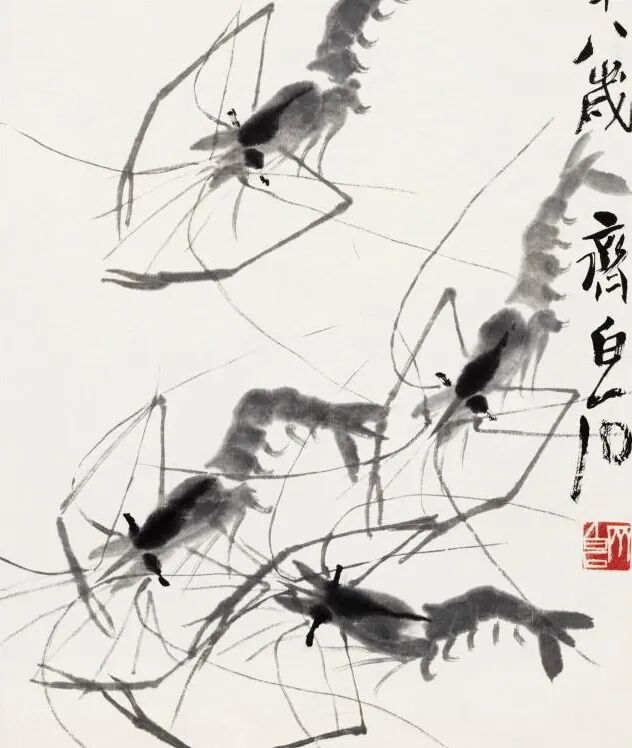 八歲 齊白石